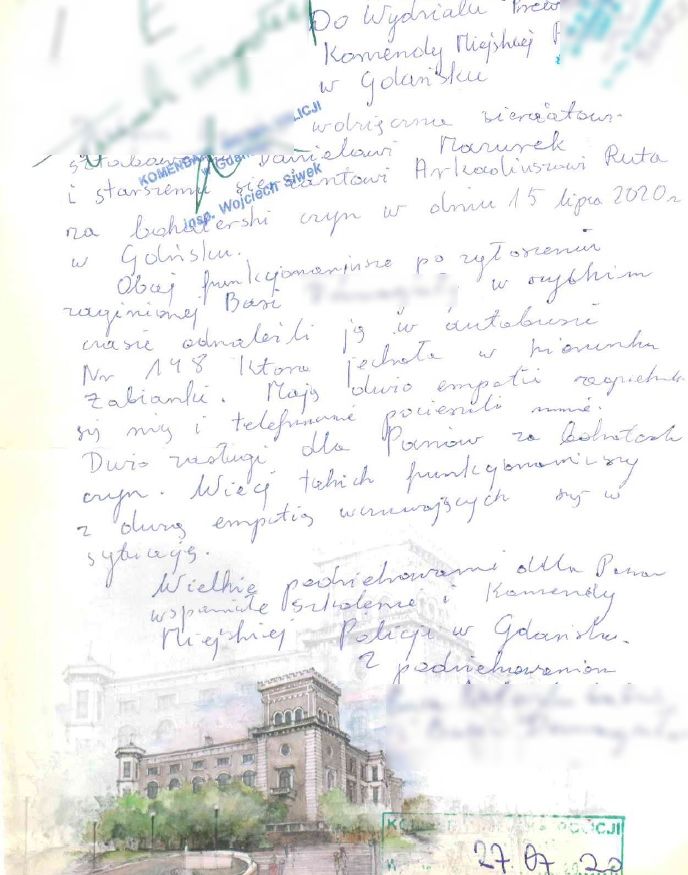 Do Wydziału Prew
Komendy Miejskiej P
w Gdańsku
wdzięcznie sierżantow-
sztabowe Danielowi Mazurek
i starszemu sierżantowi Arkadiuszowi Ruta
za bohaterski czyn w dniu 15 lipca 2020 r
w Gdńsku.
Obaj funkcjonariusze po zgłoszeniu
zaginionej Basi w szybkim
czasie odnaleźli ją w autobusie
Nr 148 która jechała w kierunku
Żabianki. Mają dużo empatii zaopieko
się nią i telefonicznie pocieszili mnie.
Dużo zasługi dla Panów za bohaterski
czyn. Więcej takich funkcjonariuszy
z dużą empatią wczuwających się w
sytuację.
Wielkie podziękowania dla Pana
wspaniałe szkolenie i Komendy
Miejskiej Policji w Gdańsku.
Z podziękowaniem
KOMENDA LICJI
insp. Wojciech Siwek
27.07 20